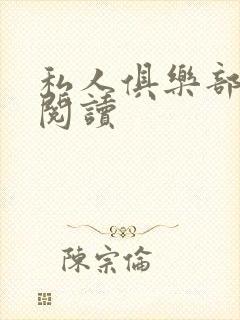 私人俱樂部
閱讀
陳宗倫